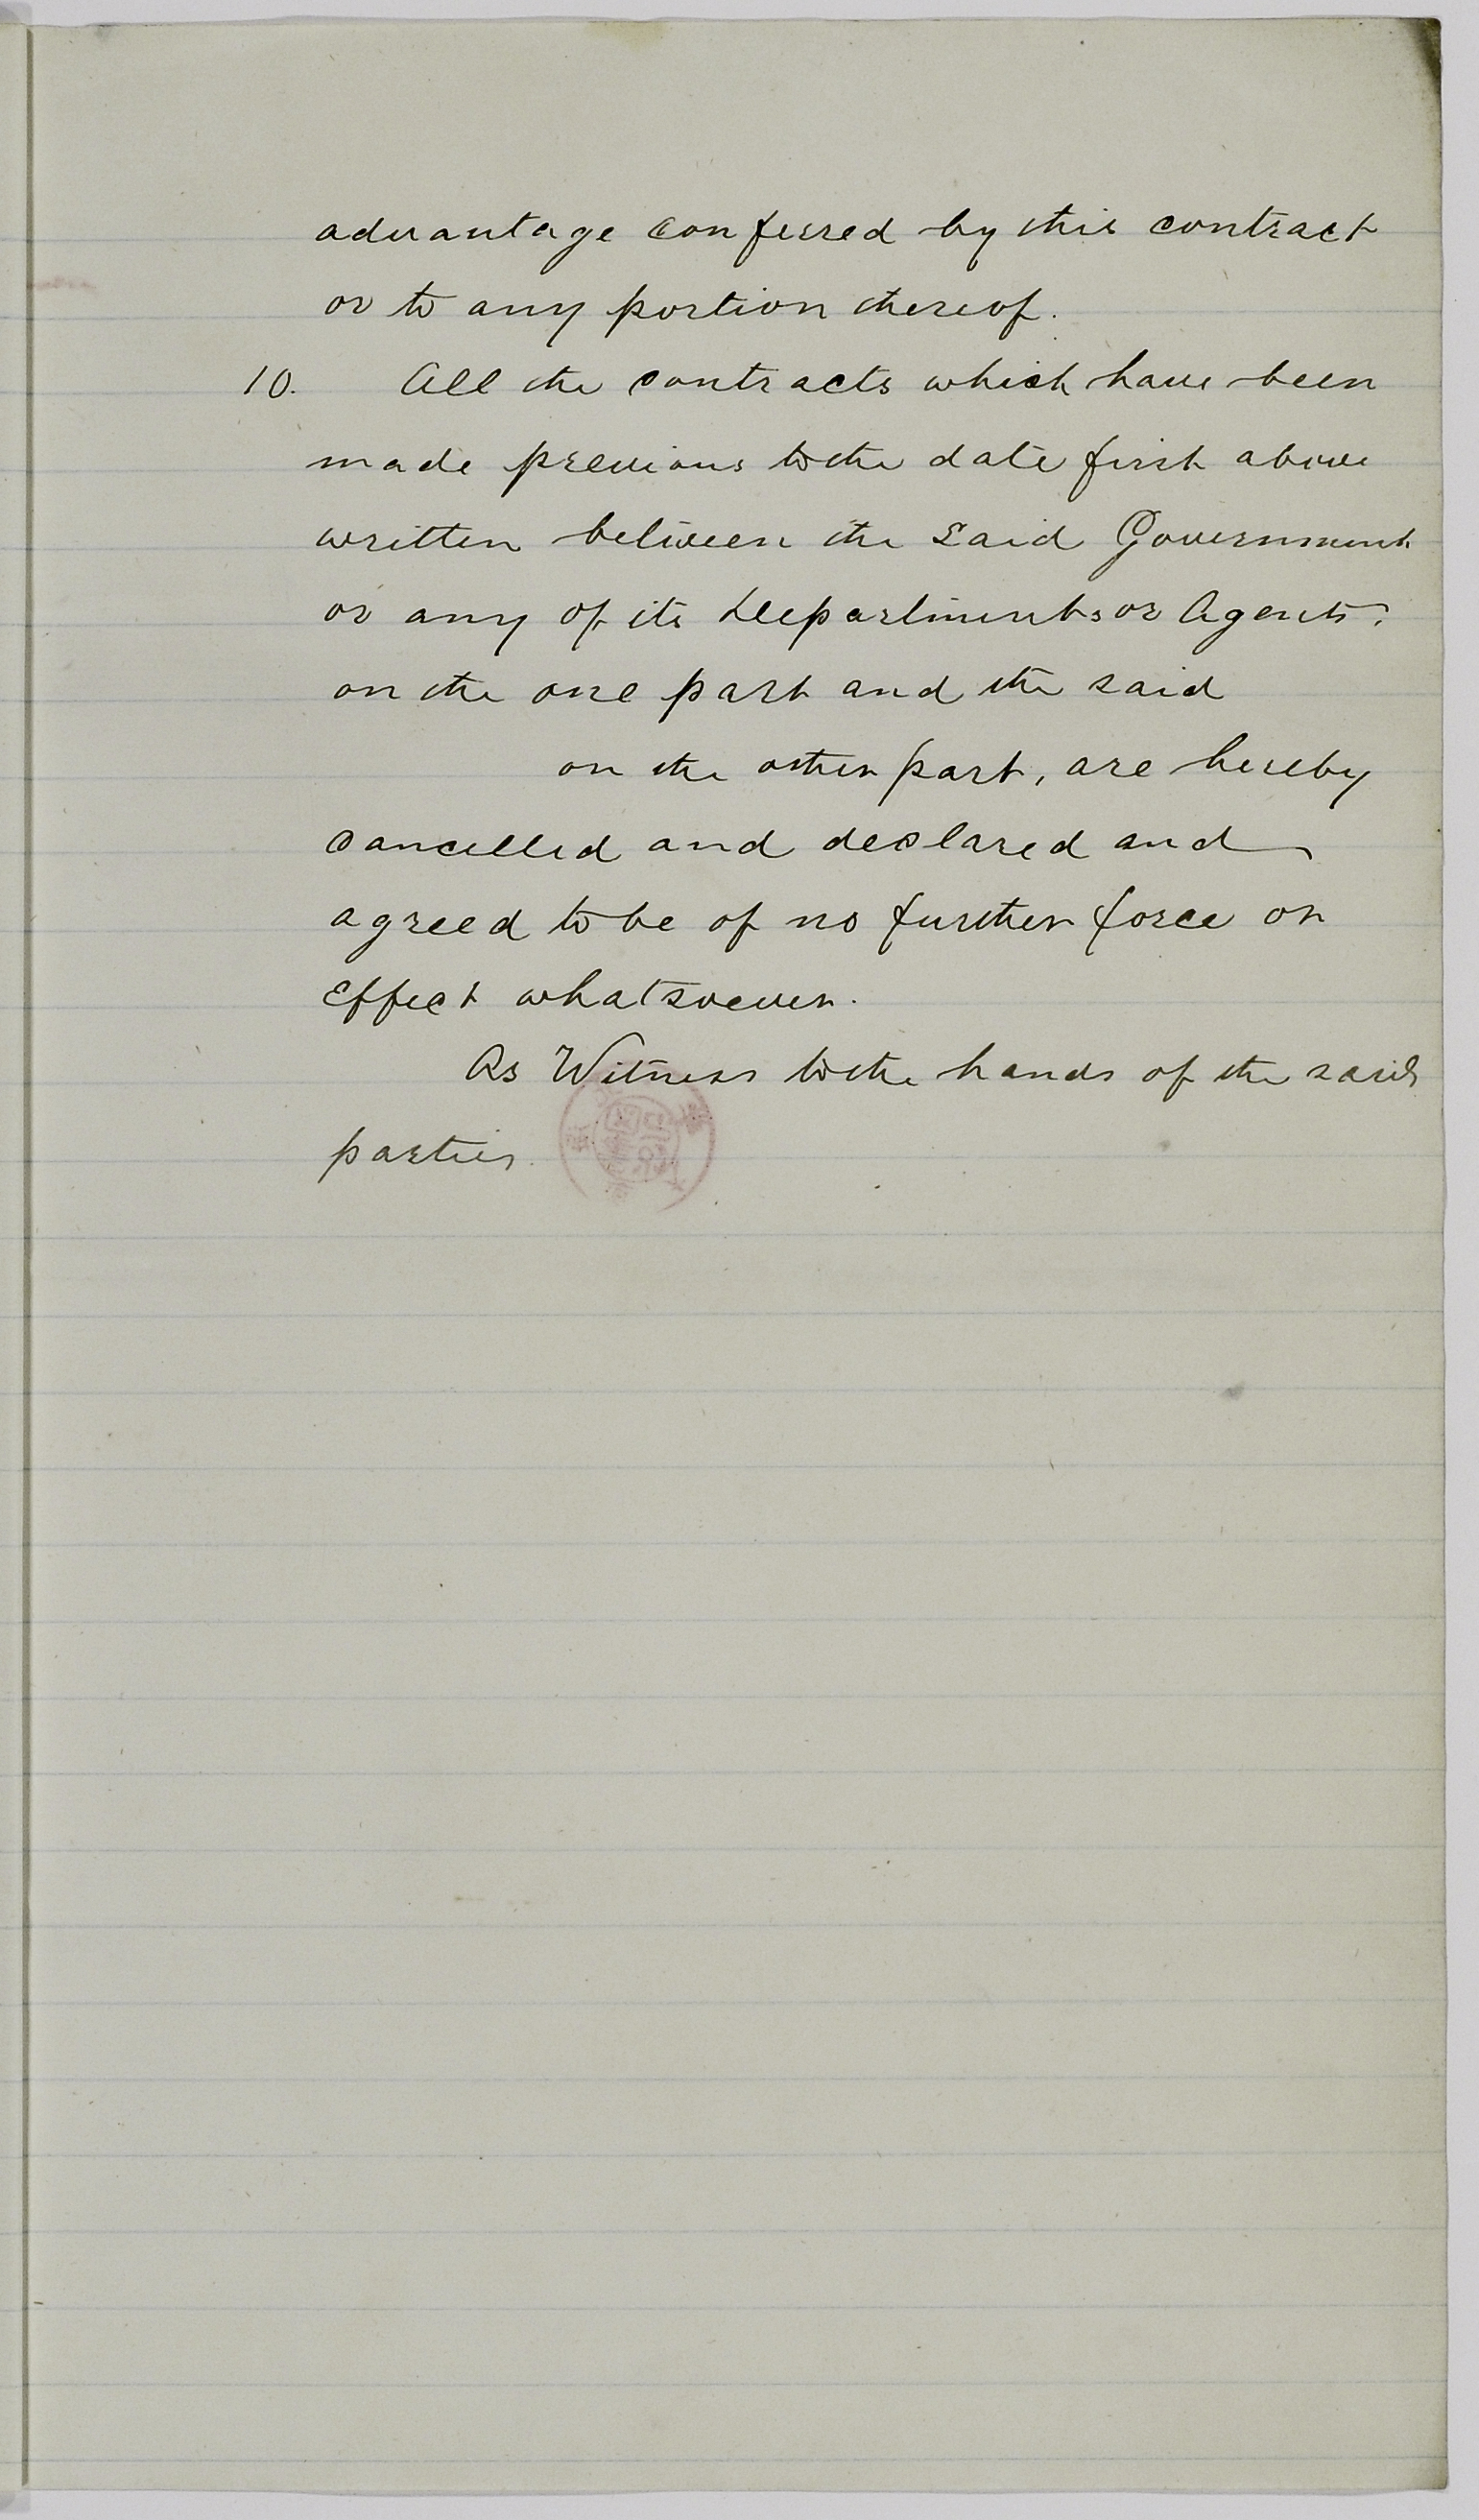 advantage conferred by this contract
or to any portion thereof.
10. All the contracts which have been
made previous to the date first above
written between the said Government
or any of its Departments or Agents.
on the one part and the said
on the other part, are hereby
cancelled and declared and
agreed to be of no further force or
effect whatsoever.
As Witness to the hands of the said
parties.